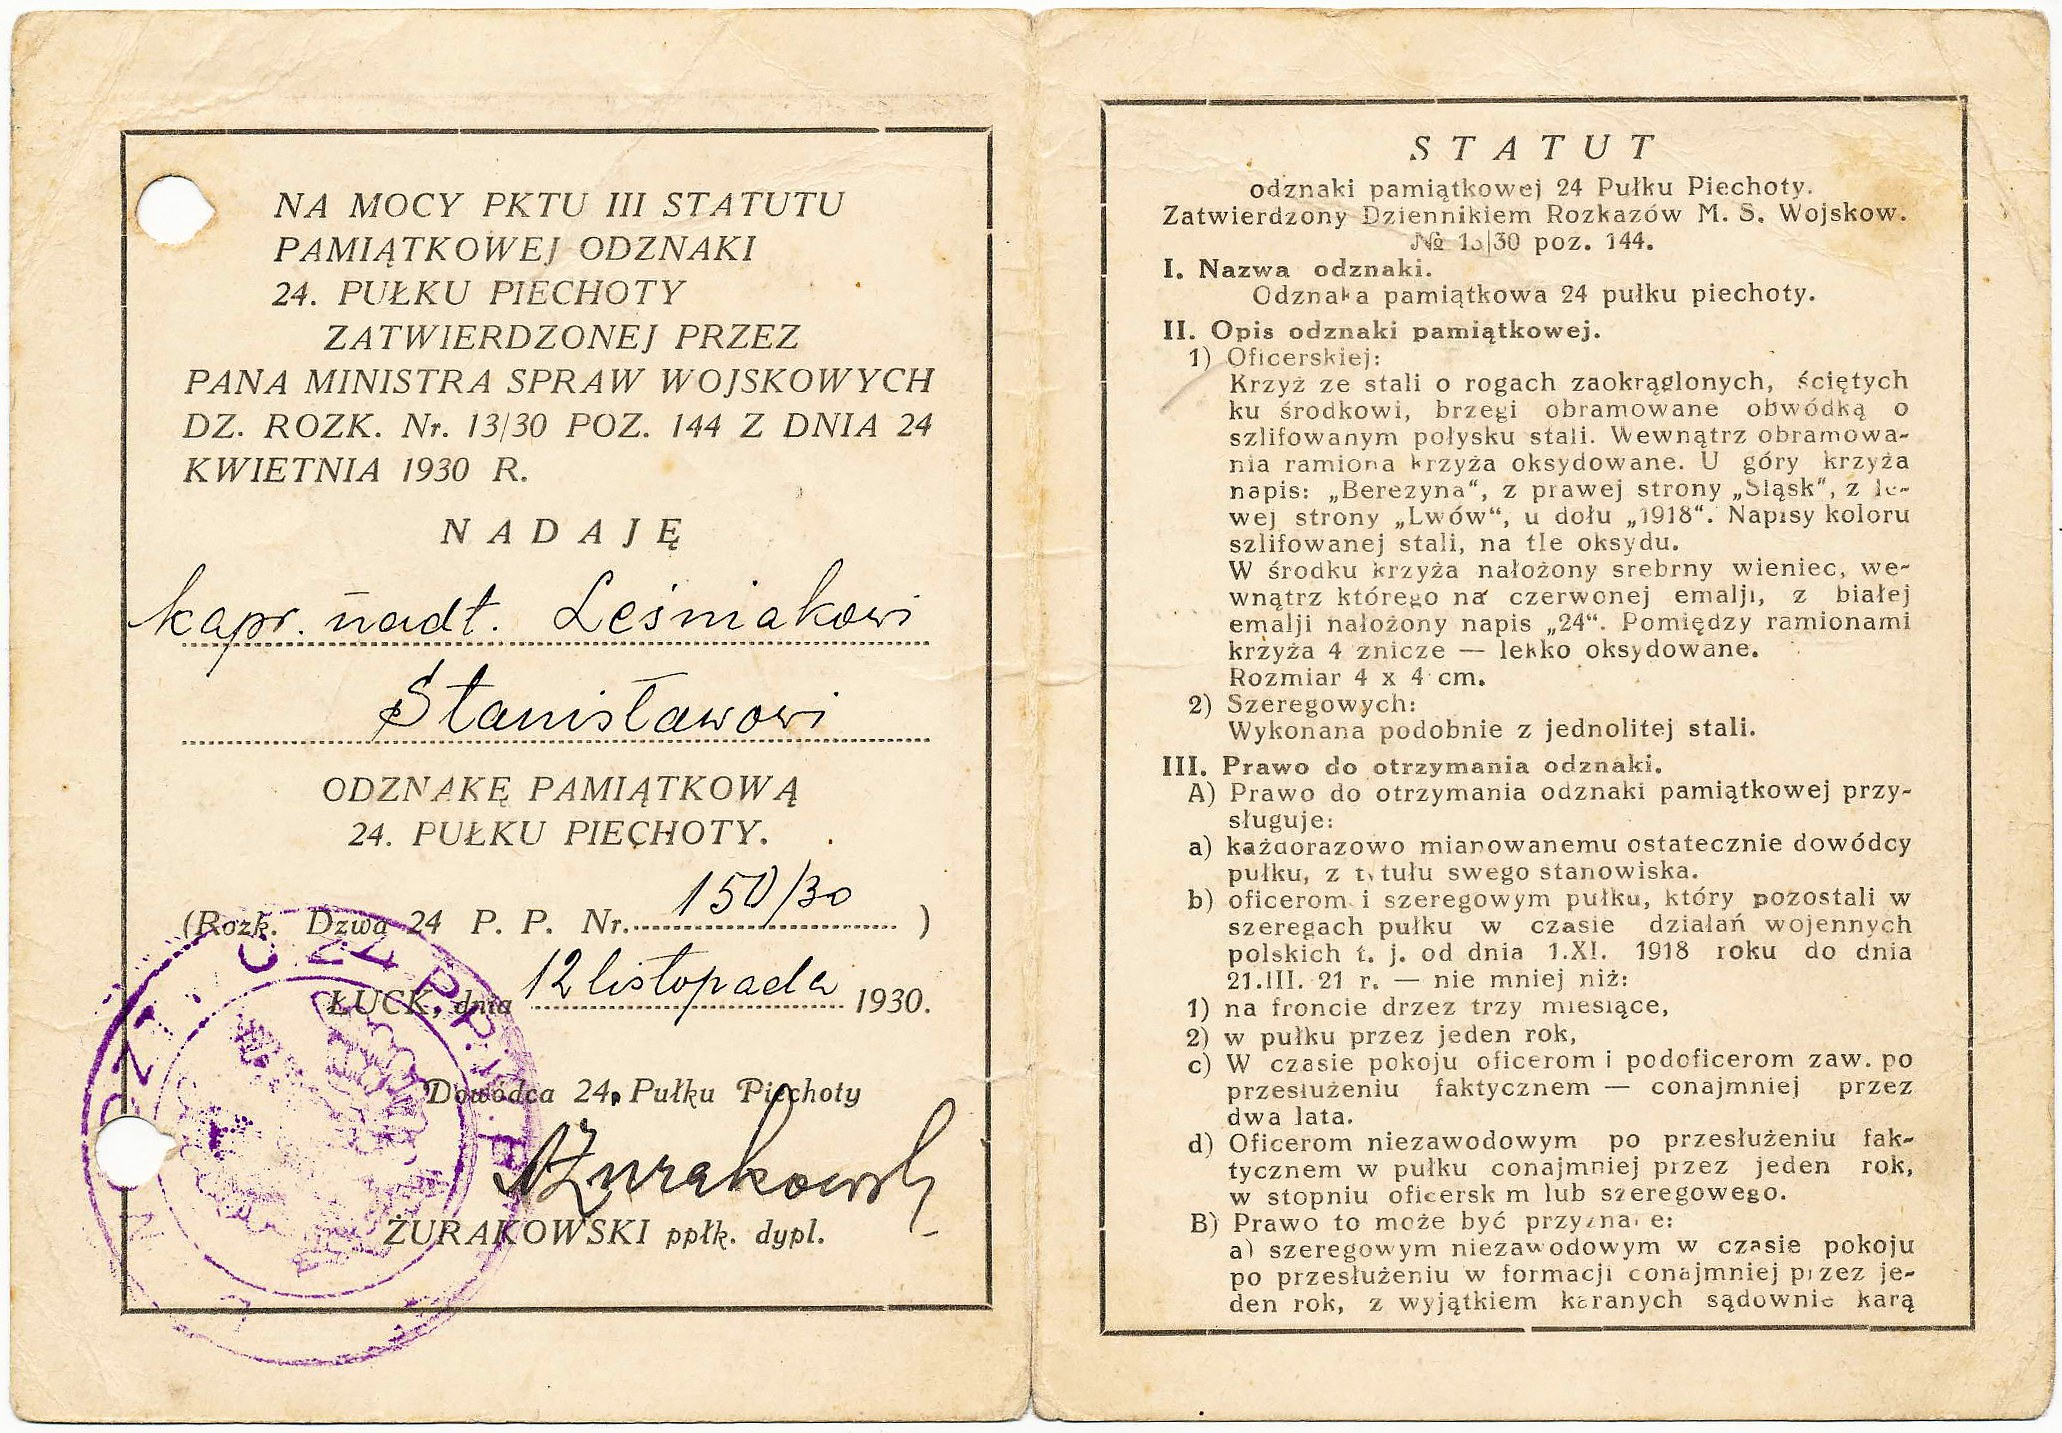 NA MOCY PKTU III STATUTU
PAMIĄTKOWEJ ODZNAKI
24. PUŁKU PIECHOTY
ZATWIERDZONEJ PRZEZ
PANA MINISTRA SPRAW WOJSKOWYCH
DZ. ROZK. Nr. 13/30 POZ. 144 Z DNIA 24
KWIETNIA 1930 R.
NADAJĘ
kapr. nadt. Leśniakowi
Stanisławowi
ODZNAKĘ PAMIĄTKOWĄ
24. PUŁKU PIECHOTY.
(Rozk. Dzwa 24 P. P. Nr. 150/30 )
ŁUCK, dnia 12 listopada 1930.
Dowódca 24. Pułku Piechoty
Żurakowski
ŻURAKOWSKI ppłk. dypl.
STATUT
odznaki pamiątkowej 24 Pułku Piechoty.
Zatwierdzony Dziennikiem Rozkazów M. S. Wojskow.
№ 13|30 poz. 144.
I. Nazwa odznaki.
Odznaka pamiątkowa 24 pułku piechoty.
II. Opis odznaki pamiątkowej.
1) Oficerskiej:
Krzyż ze stali o rogach zaokrąglonych, ściętych
ku środkowi, brzegi obramowane obwódką o
szlifowanym połysku stali. Wewnątrz obramowa-
nia ramiona krzyża oksydowane. U góry krzyża
napis: „Berezyna“, z prawej strony „Sląsk“, z le-
wej strony „Lwów“, u dołu „1918“. Napisy koloru
szlifowanej stali, na tle oksydu.
W środku krzyża nałożony srebrny wieniec, we-
wnątrz którego na czerwonej emalji, z białej
emalji nałożony napis „24“. Pomiędzy ramionami
krzyża 4 znicze — lekko oksydowane.
Rozmiar 4 x 4 cm.
2) Szeregowych:
Wykonana podobnie z jednolitej stali.
III. Prawo do otrzymania odznaki.
A) Prawo do otrzymania odznaki pamiątkowej przy-
sługuje:
a) każdorazowo mianowanemu ostatecznie dowódcy
pułku, z tytułu swego stanowiska.
b) oficerom i szeregowym pułku, który pozostali w
szeregach pułku w czasie działań wojennych
polskich t. j. od dnia 1.XI. 1918 roku do dnia
21.III. 21 r. — nie mniej niż:
1) na froncie drzez trzy miesiące,
2) w pułku przez jeden rok,
c) W czasie pokoju oficerom i podoficerom zaw. po
przesłużeniu faktycznem — conajmniej przez
dwa lata.
d) Oficerom niezawodowym po przesłużeniu fak-
tycznem w pułku conajmniej przez jeden rok,
w stopniu oficersk m lub szeregowego.
B) Prawo to może być przyznane:
a) szeregowym niezawodowym w czasie pokoju
po przesłużeniu w formacji conajmniej przez je-
den rok, z wyjątkiem karanych sądownie karą